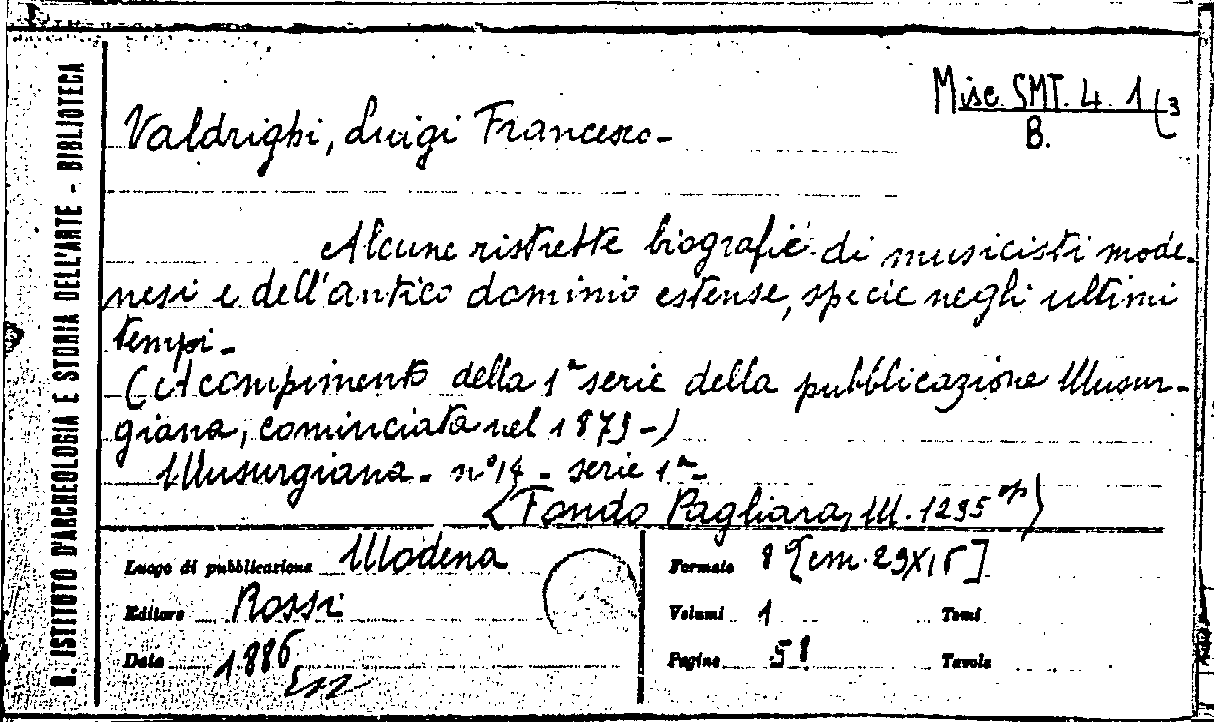 R. ISTITUTO D'ARCHEOLOGIA E STORIA DELL'ARTE - BIBLIOTECA
Misc. SMT. 4. 1 (3
B.
Valdrighi, Luigi Francesco -
Alcune ristrette biografie di musicisti mode-
nesi e dell'antico dominio estense, specie negli ultimi
tempi -
(A compimento della 1ª serie della pubblicazione Musur-
giana, cominciata nel 1879 -)
Musurgiana - nº 14 - serie 1ª -
(Fondo Pagliara, M. 1295)
Luogo di pubblicazione Modena
Editore Rossi
Data 1886
Formato 8 [cm. 23X15]
Volumi 1 Tomi
Pagine 58 Tavole